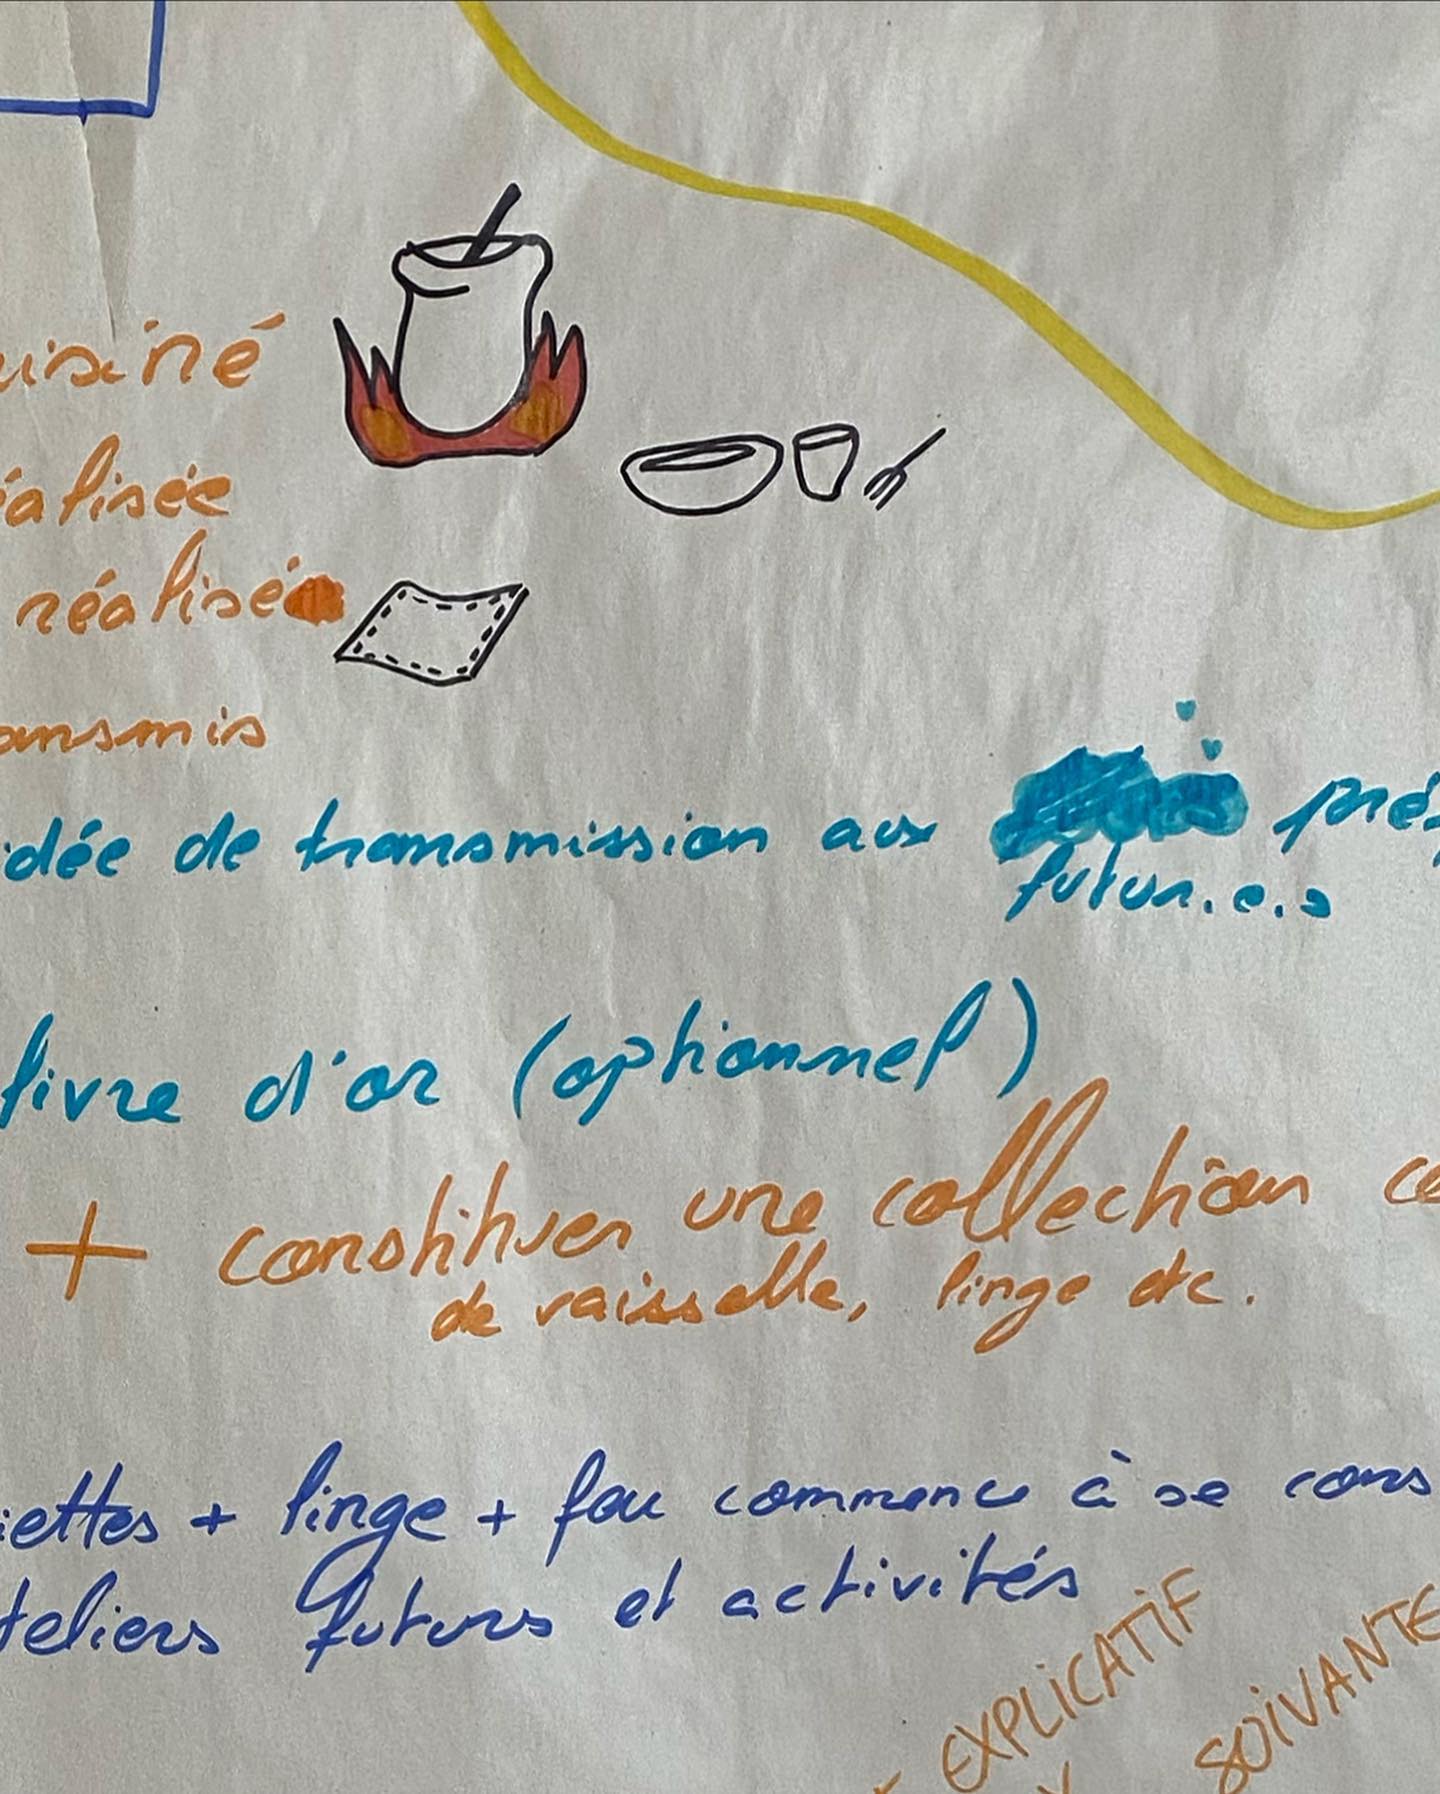 uisiné
éalisée
réalisé
ansmis
idée de transmission aux prés
futur.e.s
livre d'or (optionnel)
+ constituer une collection co
de vaisselle, linge etc.
iettes + linge + four commence à se cons
teliers futurs et activités
EXPLICATIF
SUIVANTE